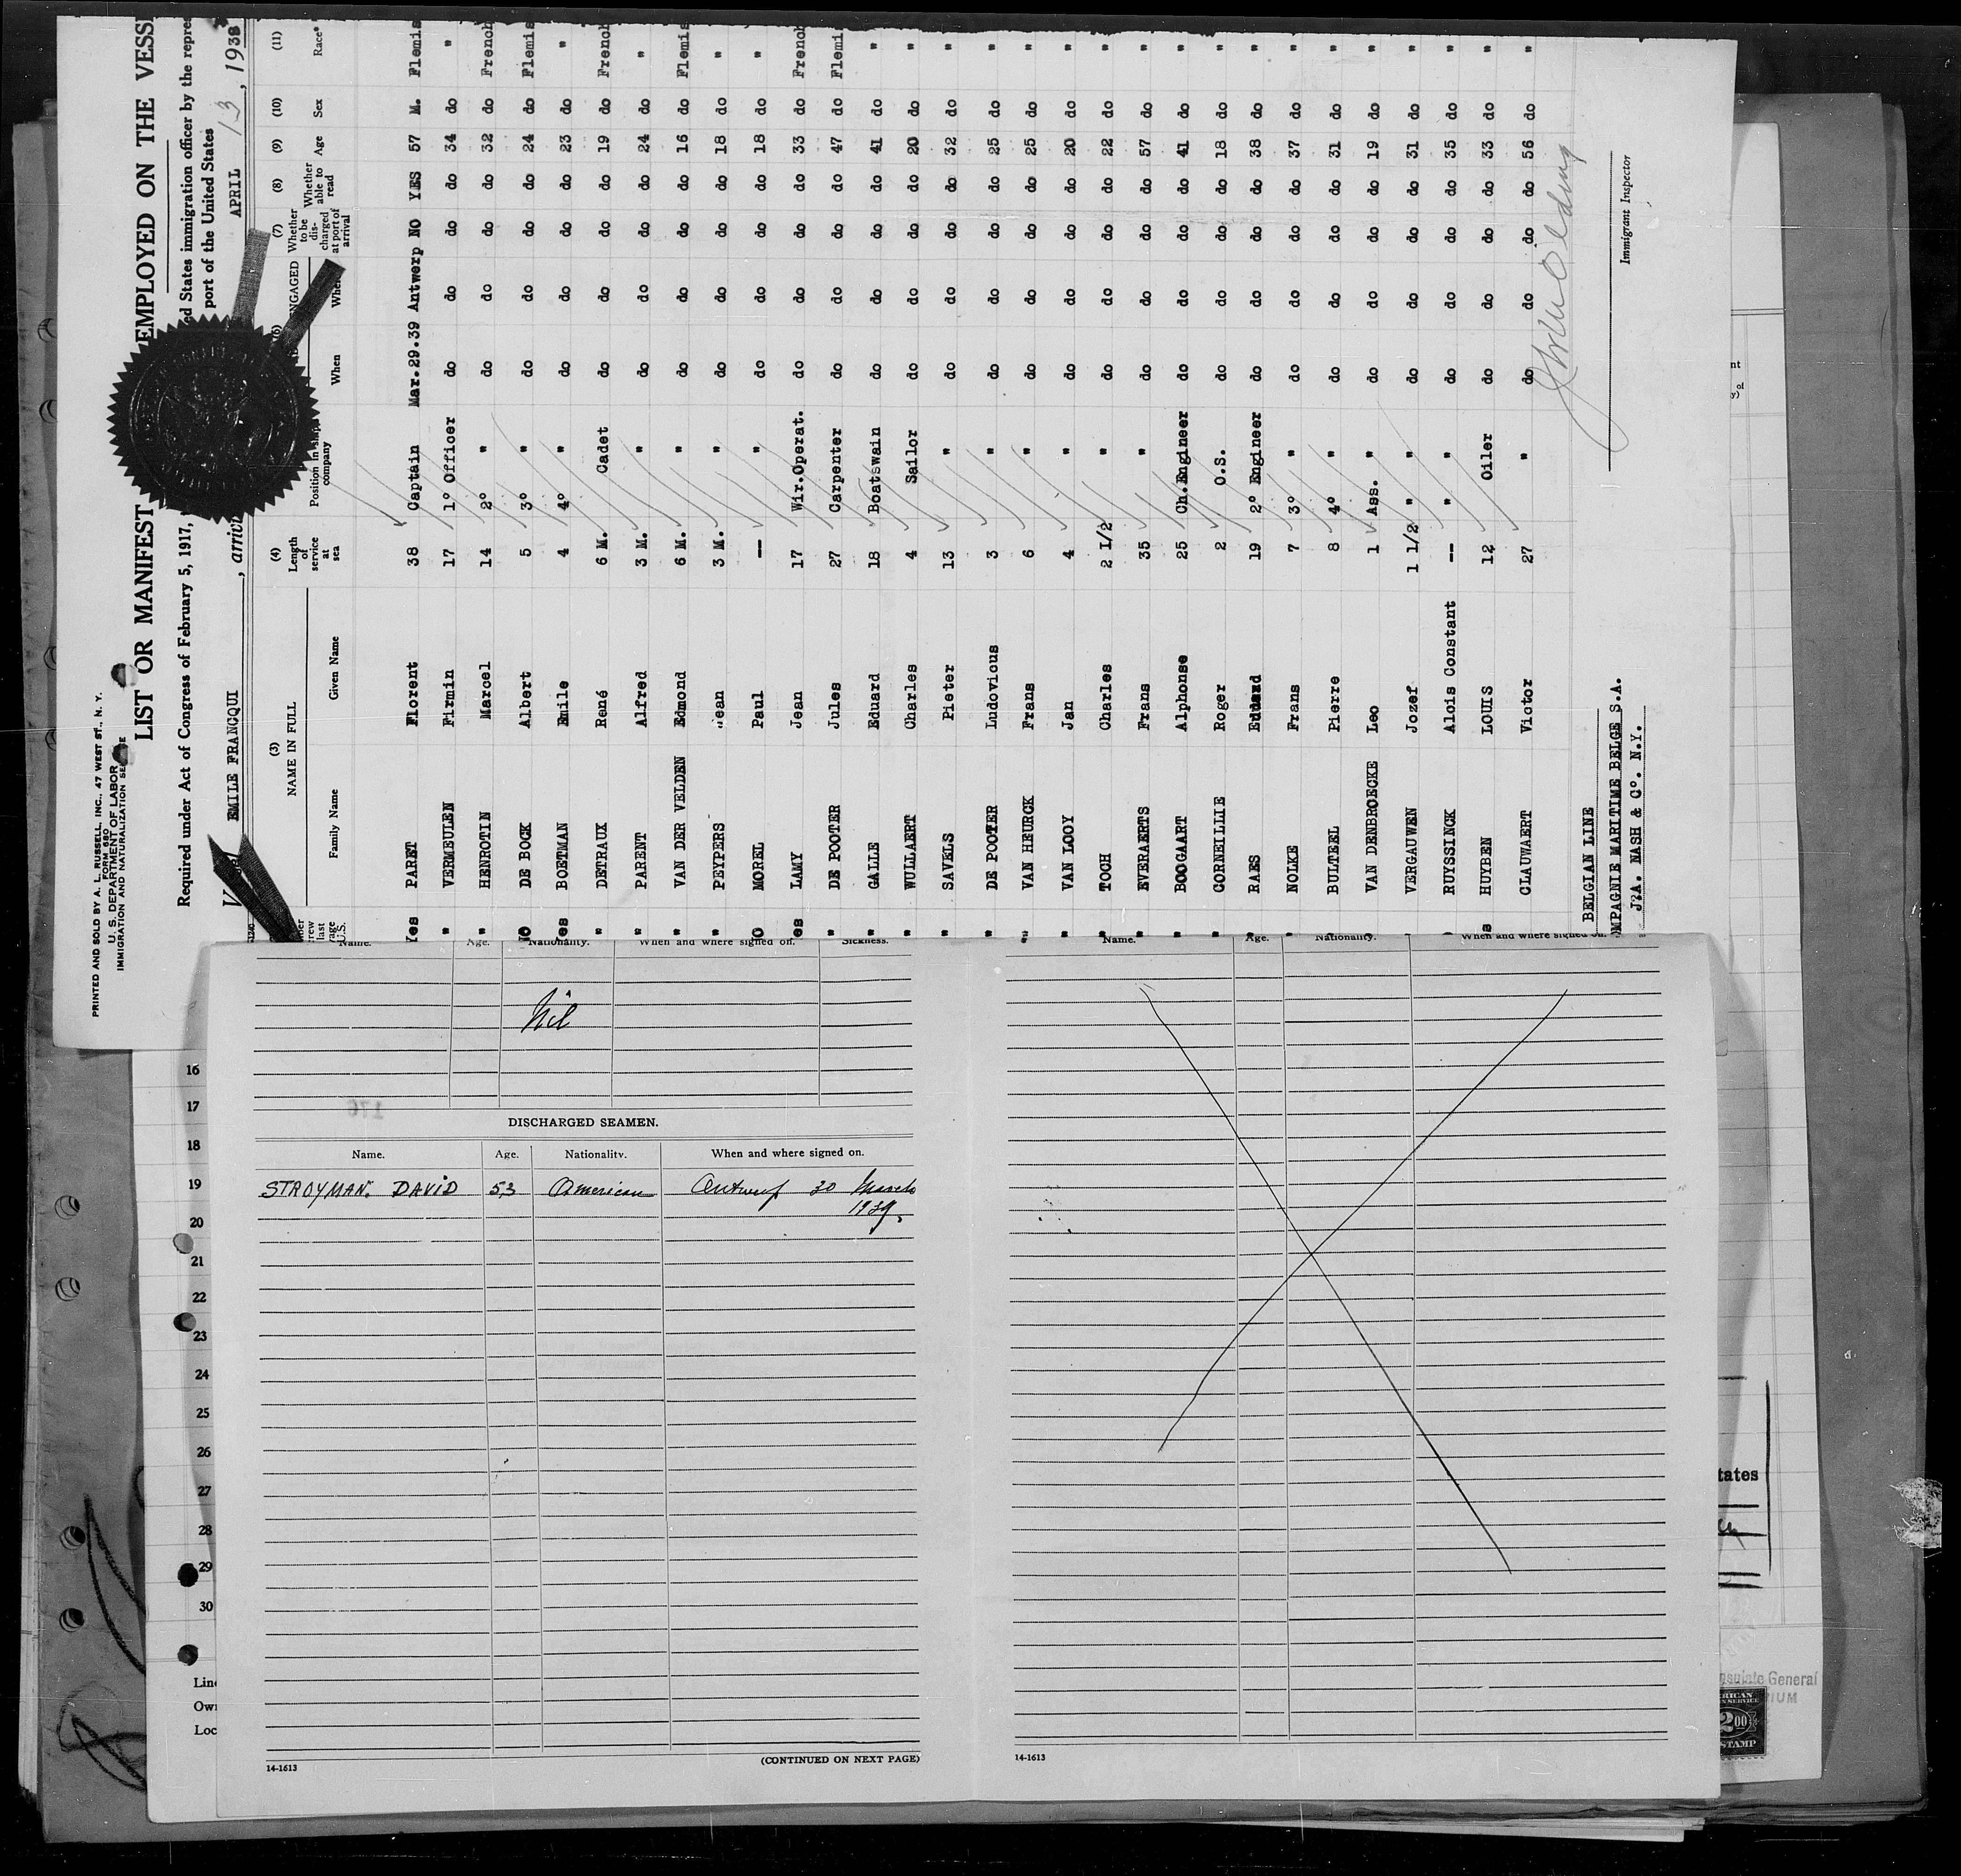 PRINTED AND SOLD BY A. L. RUSSELL, INC., 47 WEST ST., N. Y.
FORM 680
U. S. DEPARTMENT OF LABOR
IMMIGRATION AND NATURALIZATION SE
LIST OR MANIFEST EMPLOYED ON THE VESS
Required under Act of Congress of February 5, 1917, ed States immigration officer by the repres
port of the United States
EMILE FRANCQUI , arriv APRIL 13 , 1938
(3) NAME IN FULL Family Name Given Name
(4) Length of service at sea
Position in ship's company
(6) ENGAGED When Wher
(7) Whether to be dis-charged at port of arrival
(8) Whether able to read
(9) Age
(10) Sex
(11) Race*
Yes PARET Florent 38 Captain Mar.29.39 Antwerp NO YES 57 M. Flemis
" VERMEULEN Firmin 17 1° Officer do do do do 34 do "
" HENROTIN Marcel 14 2° " do do do do 32 do French
NO DE BOCK Albert 5 3° " do do do do 24 do Flemis
es BOETMAN Emile 4 4° " do do do do 23 do "
" DETRAUX René 6 M. Cadet do do do do 19 do French
" PARENT Alfred 3 M. " do do do do 24 do "
" VAN DER VELDEN Edmond 6 M. " do do do do 16 do Flemis
" PEYPERS Jean 3 M. " do do do do 18 do "
NO MOREL Paul -- " do do do do 18 do "
es LAMY Jean 17 Wir.Operat. do do do do 33 do French
" DE POOTER Jules 27 Carpenter do do do do 47 do Flemi
" GALLE Eduard 18 Boatswain do do do do 41 do "
" WULLAERT Charles 4 Sailor do do do do 20 do "
" SAVELS Pieter 13 " do do do do 32 do "
" DE POOTER Ludovicous 3 " do do do do 25 do "
" VAN HEURCK Frans 6 " do do do do 25 do "
" VAN LOOY Jan 4 " do do do do 20 do "
" TOCH Charles 2 1/2 " do do do do 22 do "
" EVERAERTS Frans 35 " do do do do 57 do "
" BOOGAART Alphonse 25 Ch.Engineer do do do do 41 do "
" CORNEILLIE Roger 2 O.S. do do do do 18 do "
" RAES Eduard 19 2° Engineer do do do do 38 do "
" NOLKE Frans 7 3° " do do do do 37 do "
" BULTEEL Pierre 8 4° " do do do do 31 do "
" VAN DENBROECKE Leo 1 Ass. " do do do do 19 do "
VERGAUWEN Jozef 1 1/2 " " do do do do 31 do "
" RUYSSINCK Alois Constant -- " " do do do do 35 do "
s HUYBEN LOUIS 12 Oiler do do do do 33 do "
" CLAUWAERT Victor 27 " do do do do 56 do "
BELGIAN LINE
OMPAGNIE MARITIME BELGE S.A.
J.A. NASH & C°. N.Y.
Immigrant Inspector
Name. Age. Nationality. When and where signed on. Sickness.
Nil
DISCHARGED SEAMEN.
Name. Age. Nationality. When and where signed on.
STROYMAN. DAVID 53 American Antwerp 30 March
1939.
(CONTINUED ON NEXT PAGE)
14-1613
Name. Age. Nationality. When and where signed on.
14-1613
16
17
18
19
20
21
22
23
24
25
26
27
28
29
30
Line
Own
Loc
nt
of
y)
tates
nsulate General
GIUM
RICAN
N SERVICE
2 00
STAMP